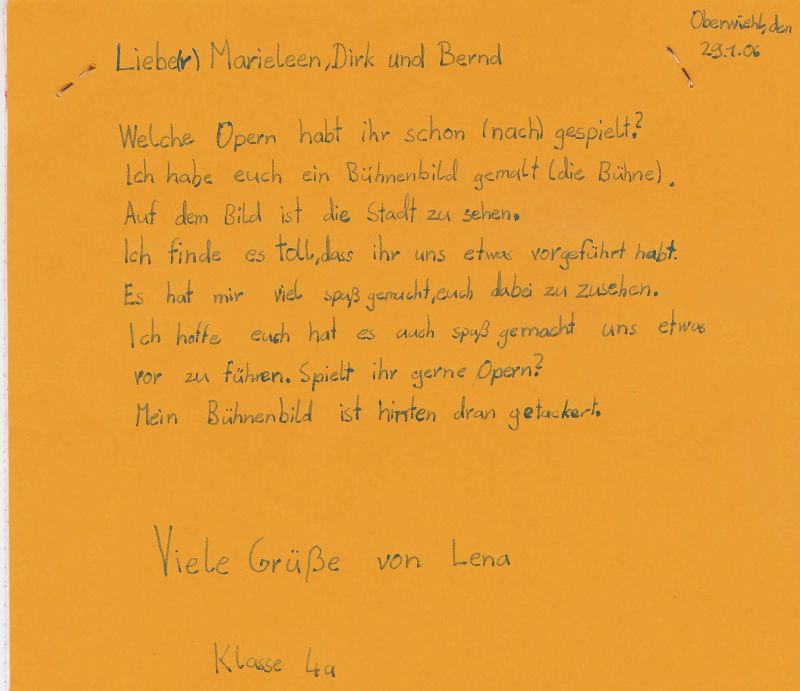 Oberwiehl, den
29.1.06
Liebe(r) Marieleen, Dirk und Bernd
Welche Opern habt ihr schon (nach) gespielt?
Ich habe euch ein Bühnenbild gemalt (die Bühne).
Auf dem Bild ist die Stadt zu sehen.
Ich finde es toll, dass ihr uns etwas vorgeführt habt.
Es hat mir viel spaß gemacht, euch dabei zu zusehen.
Ich hoffe euch hat es auch spaß gemacht uns etwas
vor zu führen. Spielt ihr gerne Opern?
Mein Bühnenbild ist hinten dran getackert.
Viele Grüße von Lena
Klasse 4a